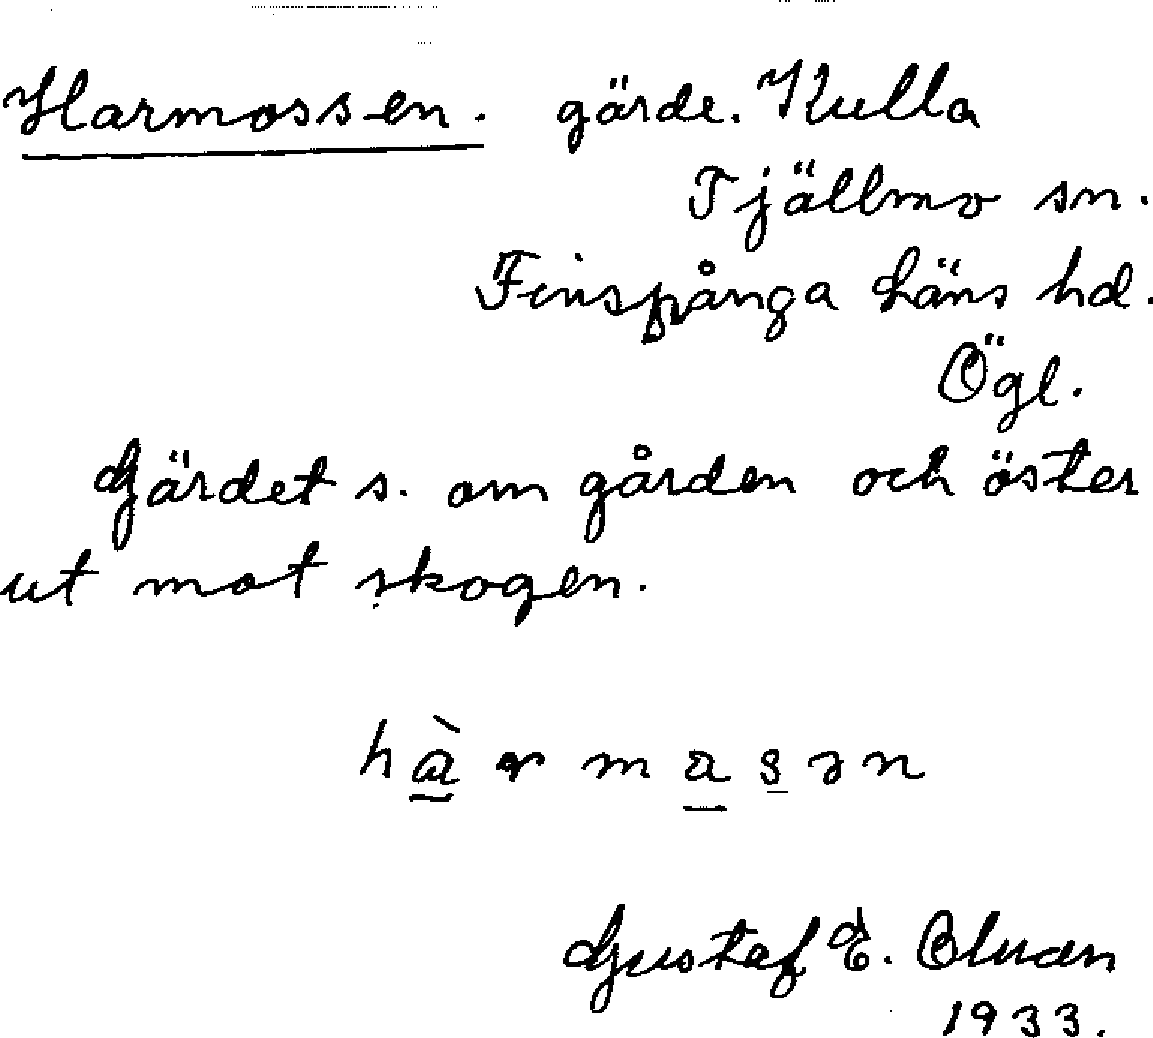 Harmossen. gärde. Kulla
Tjällmo sn.
Finspånga läns hd.
Ögl.
Gärdet s. om gården och öster
ut mot skogen.
hàrmasən
Gustaf E.
1933.